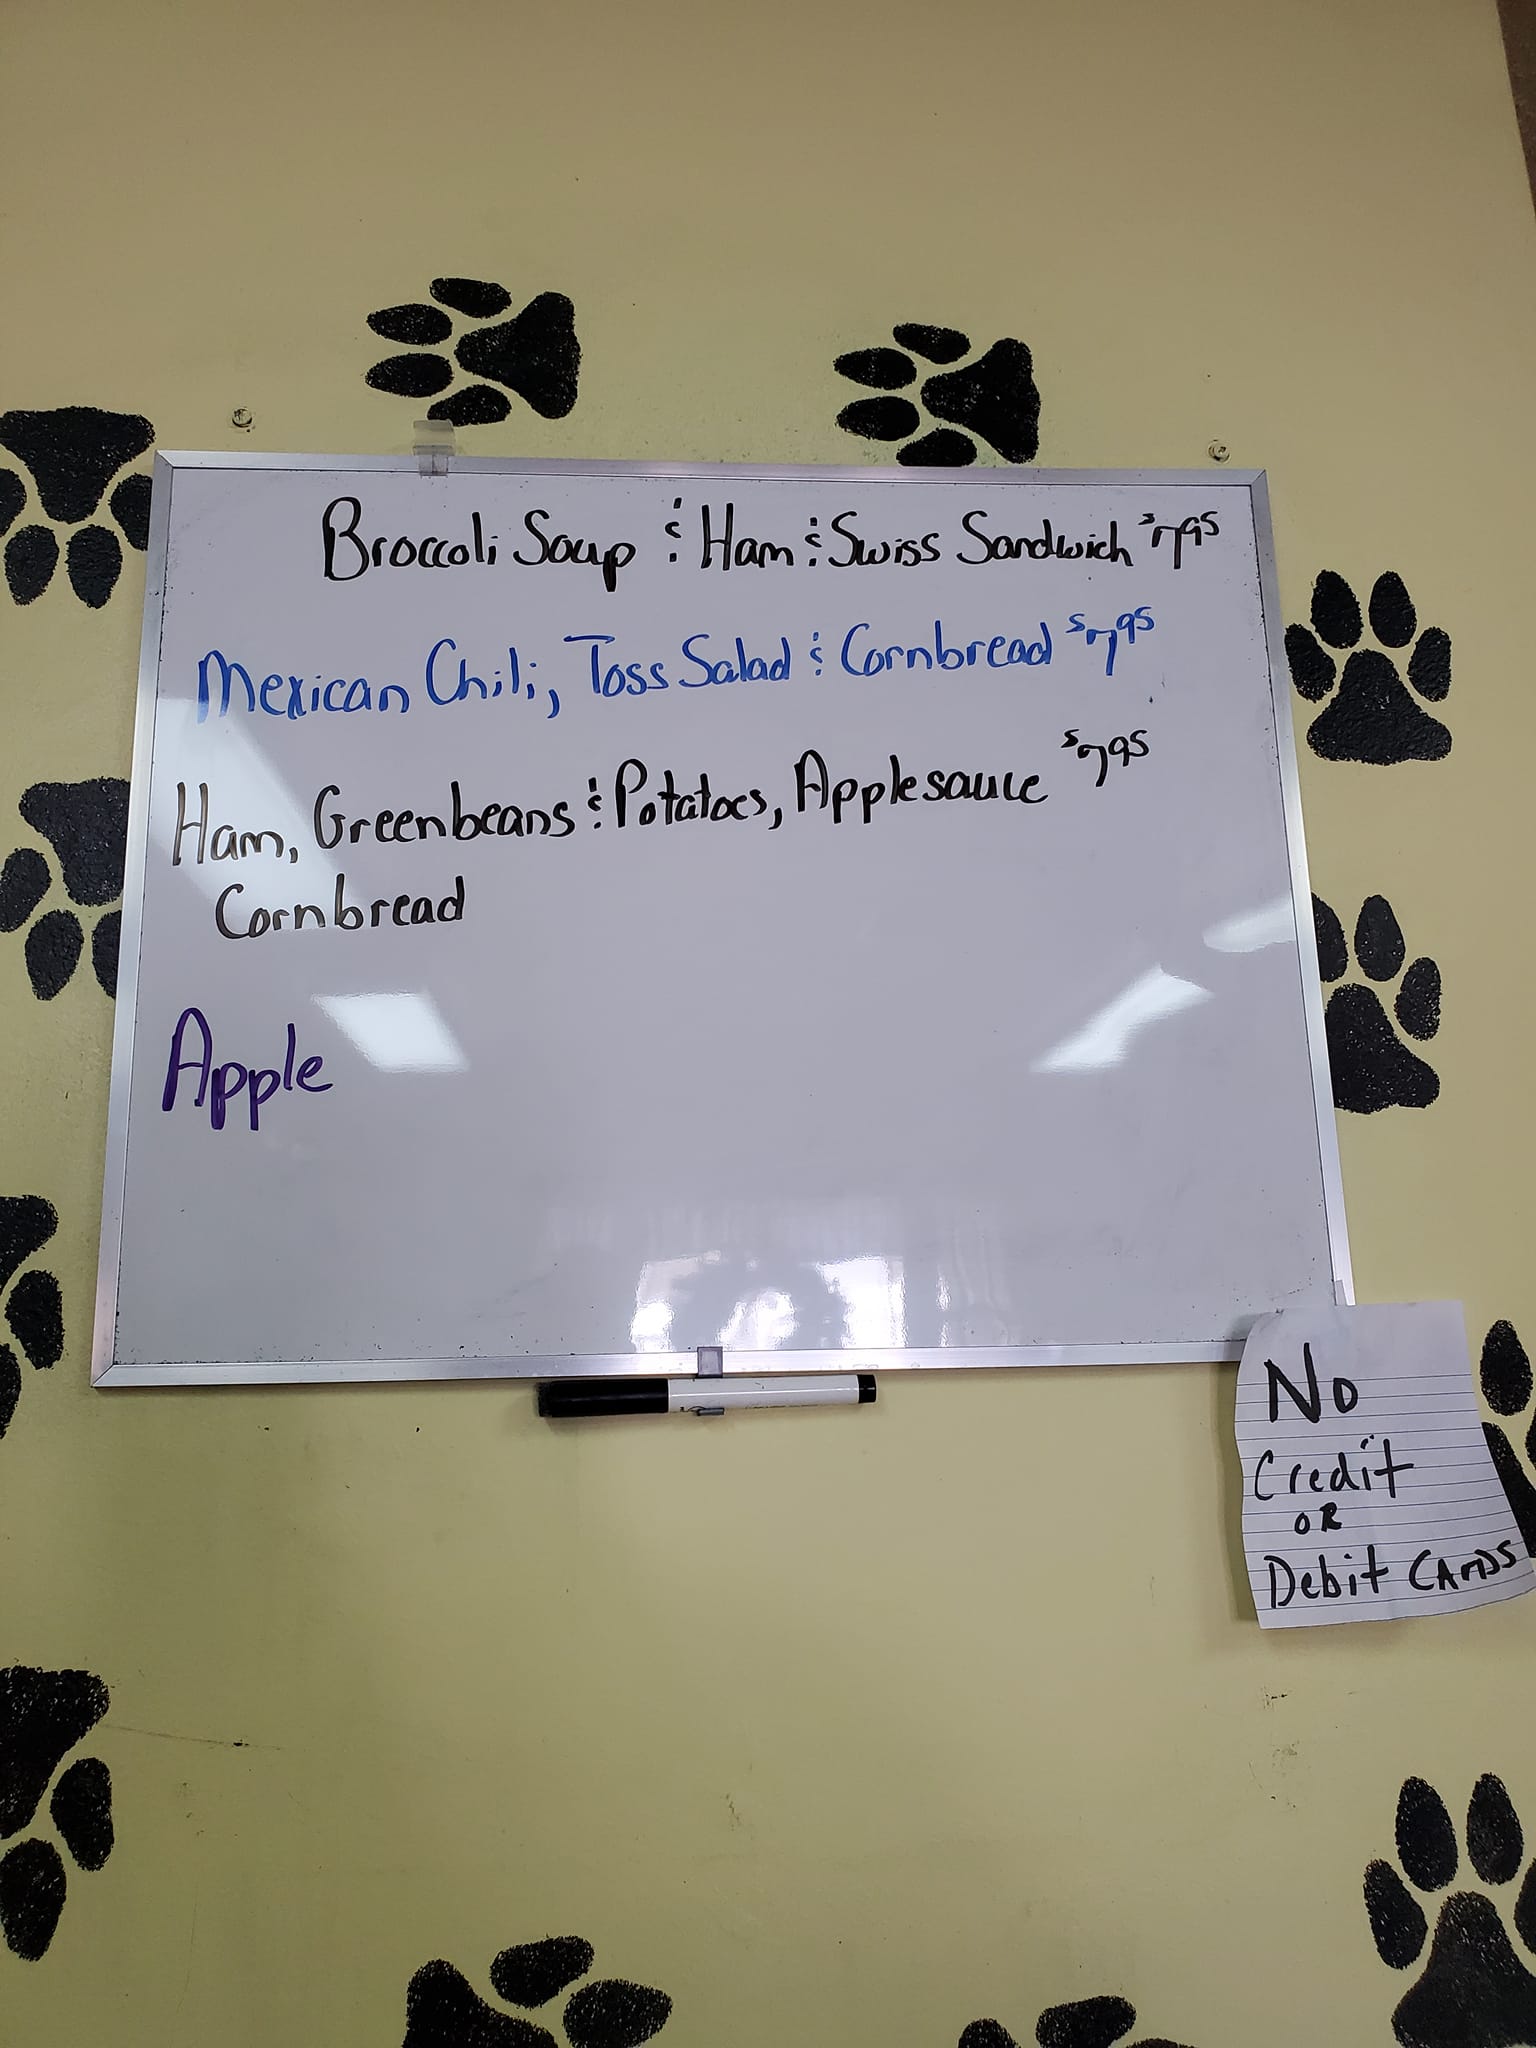 Broccoli Soup & Ham & Swiss Sandwich $7.95
Mexican Chili, Toss Salad & Cornbread $7.95
Ham, Greenbeans & Potatoes, Applesauce $7.95
Cornbread
Apple
No
Credit
OR
Debit CARDS